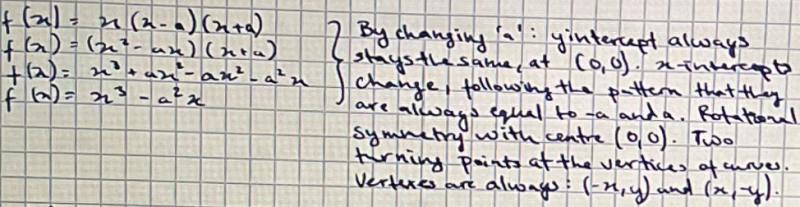 f(x) = x(x-a)(x+a)
f(x) = (x²-ax)(x+a)
f(x) = x³+ax²-ax²-a²x
f(x) = x³-a²x
By changing 'a': y intercept always
stays the same, at (0,0). x-intercepts
change, following the pattern that they
are always equal to -a and a. Rotational
symmetry with centre (0,0). Two
turning points at the vertices of curves.
Vertexes are always: (-x,y) and (x,-y).